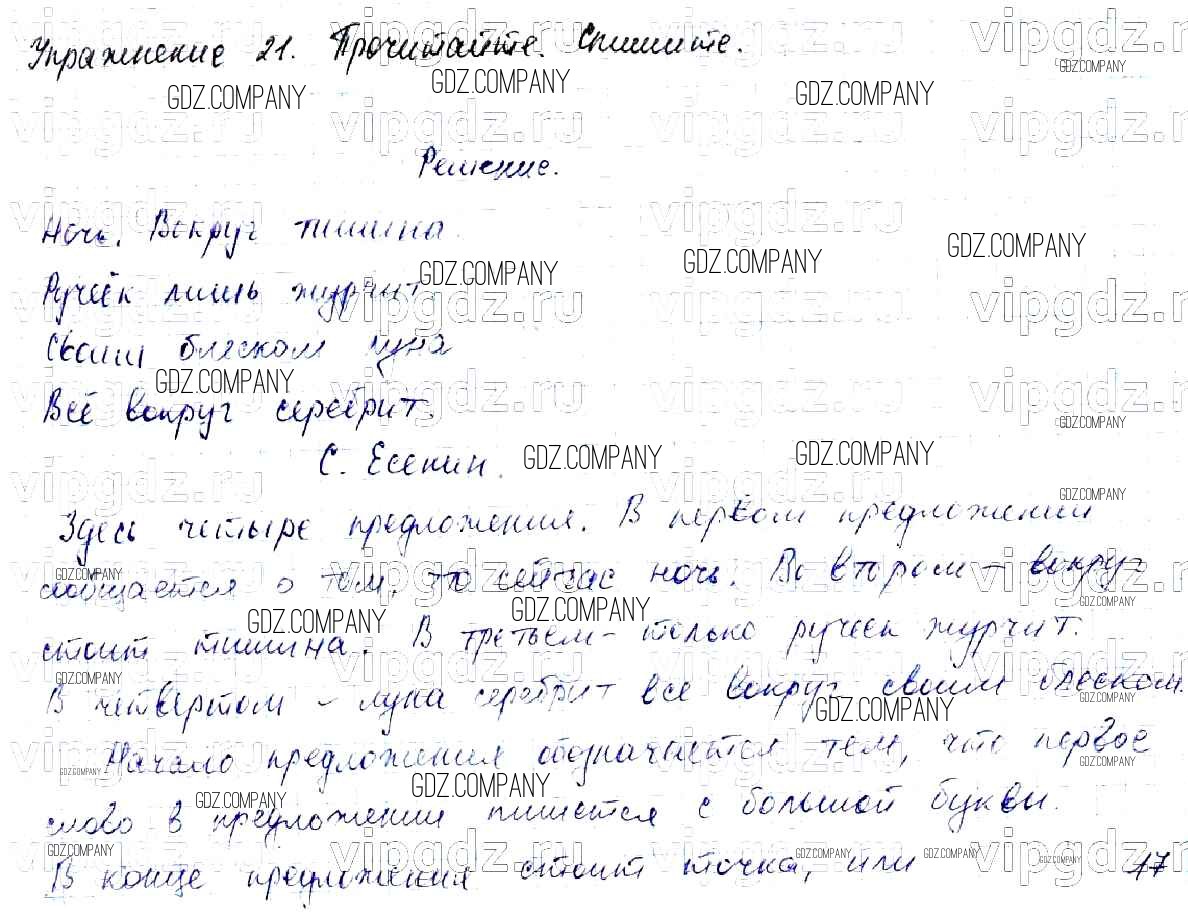 Упражнение 21. Прочитайте. Спишите.
Решение.
Ночь. Вокруг тишина.
Ручеёк лишь журчит.
Своим блеском луна
Всё вокруг серебрит.
С. Есенин.
Здесь четыре предложения. В первом предложении
сообщается о том, что сейчас ночь. Во втором – вокруг
стоит тишина. В третьем – только ручеек журчит.
В четвертом – луна серебрит все вокруг своим блеском.
Начало предложения обозначается тем, что первое
слово в предложении пишется с большой буквы.
В конце предложения стоит точка, или
17
vipgdz.ru
GDZ.COMPANY